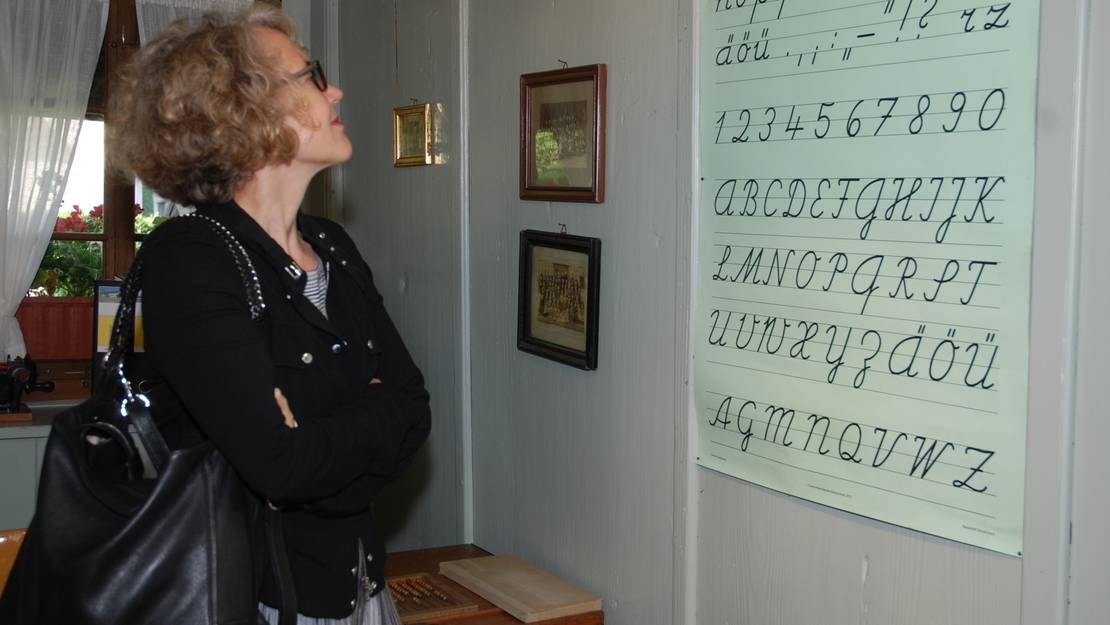 nopq " ! ? r z
äöü . , ; : „ – ! ?
1 2 3 4 5 6 7 8 9 0
A B C D E F G H I J K
L M N O P Q R S T
U V W X Y Z Ä Ö Ü
A G M N Q V W Z